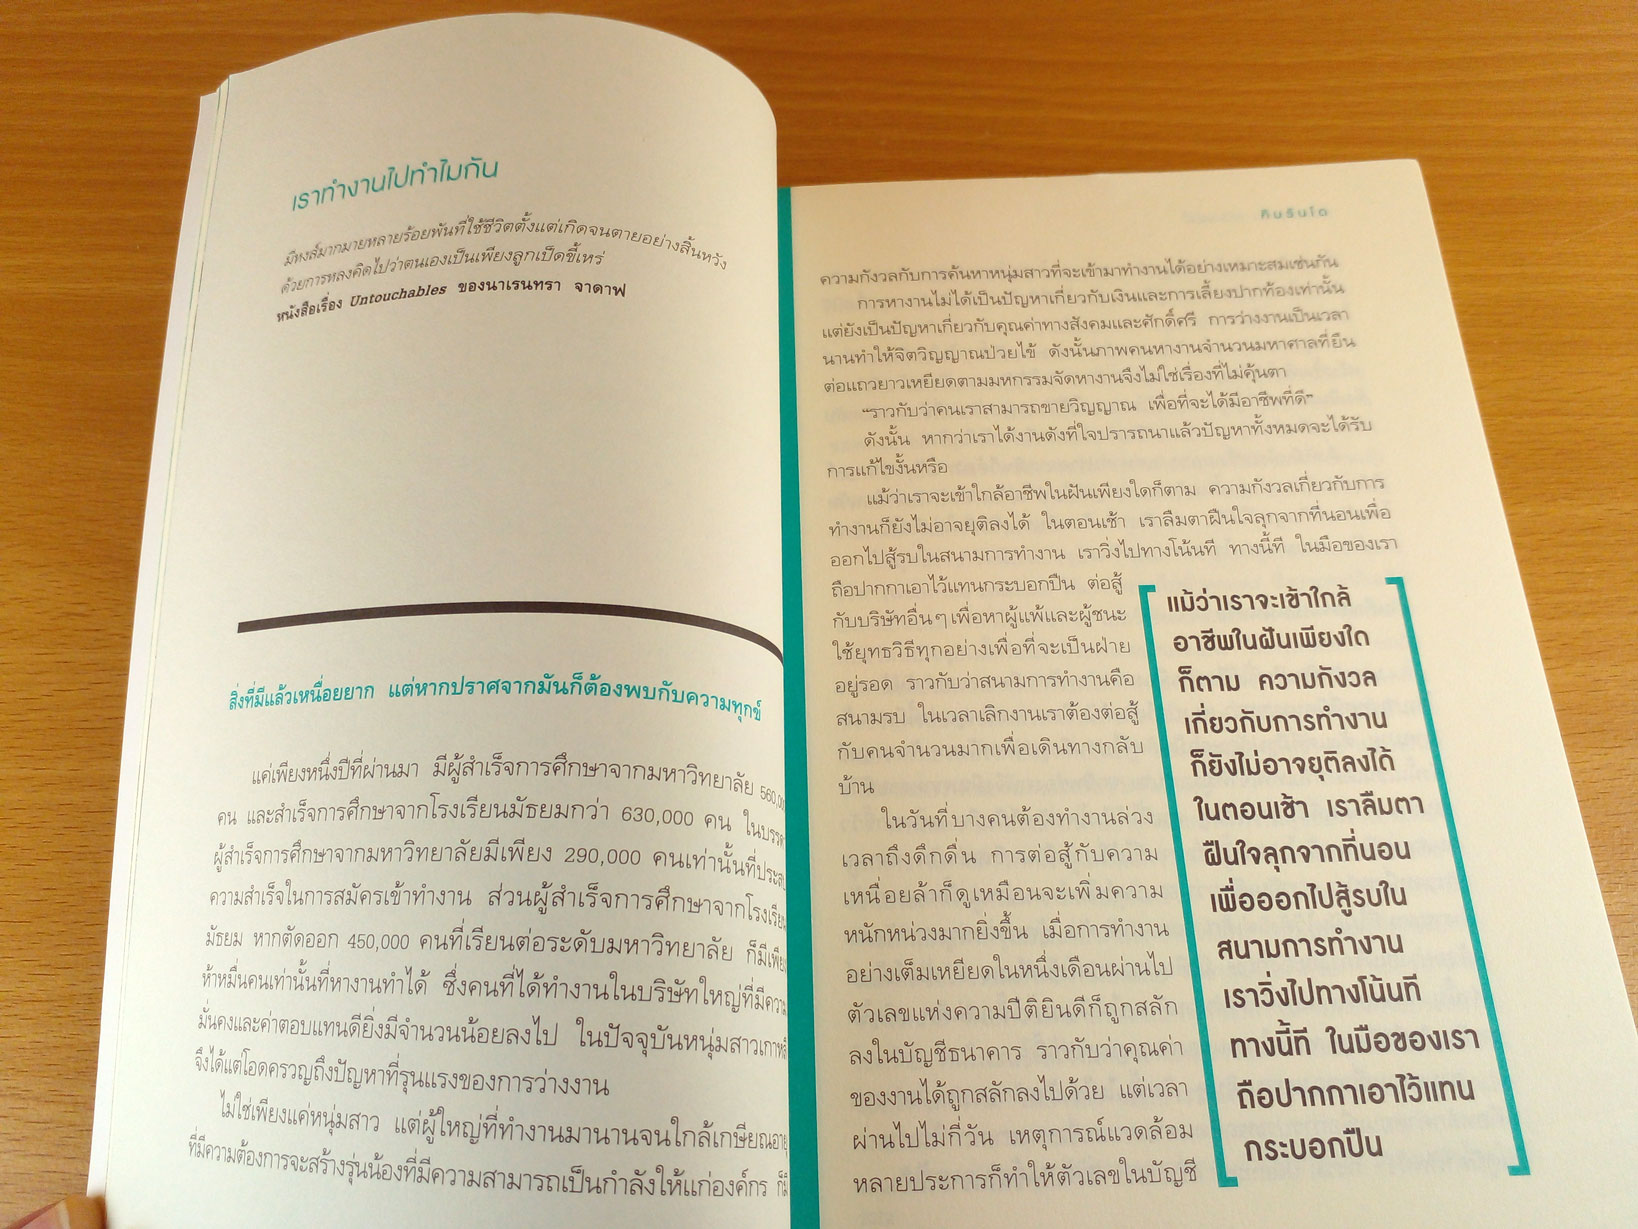 เราทำงานไปทำไมกัน
มีหงส์มากมายหลายร้อยพันที่ใช้ชีวิตตั้งแต่เกิดจนตายอย่างสิ้นหวัง
ด้วยการหลงคิดไปว่าตนเองเป็นเพียงลูกเป็ดขี้เหร่
หนังสือเรื่อง Untouchables ของนาเรนทรา จาดาฟ
สิ่งที่มีแล้วเหนื่อยยาก แต่หากปราศจากมันก็ต้องพบกับความทุกข์
แค่เพียงหนึ่งปีที่ผ่านมา มีผู้สำเร็จการศึกษาจากมหาวิทยาลัย
คน และสำเร็จการศึกษาจากโรงเรียนมัธยมกว่า 630,000 คน
ผู้สำเร็จการศึกษาจากมหาวิทยาลัยมีเพียง 290,000 คนเท่านั้นที่
ความสำเร็จในการสมัครเข้าทำงาน ส่วนผู้สำเร็จการศึกษาจากโรงเรียน
มัธยม หากตัดออก 450,000 คนที่เรียนต่อระดับมหาวิทยาลัย ก็มีเพียง
ห้าหมื่นคนเท่านั้นที่หางานทำได้ ซึ่งคนที่ได้ทำงานในบริษัทใหญ่ที่มีความ
มั่นคงและค่าตอบแทนดียิ่งมีจำนวนน้อยลงไป ในปัจจุบันหนุ่มสาวเกาหลี
จึงได้แต่โอดครวญถึงปัญหาที่รุนแรงของการว่างงาน
ไม่ใช่เพียงแค่หนุ่มสาว แต่ผู้ใหญ่ที่ทำงานมานานจนใกล้เกษียณอายุ
ที่มีความต้องการจะสร้างรุ่นน้องที่มีความสามารถเป็นกำลังให้แก่องค์กร ก็มี
คิมรันโด
ความกังวลกับการค้นหาหนุ่มสาวที่จะเข้ามาทำงานได้อย่างเหมาะสมเช่นกัน
การหางานไม่ได้เป็นปัญหาเกี่ยวกับเงินและการเลี้ยงปากท้องเท่านั้น
แต่ยังเป็นปัญหาเกี่ยวกับคุณค่าทางสังคมและศักดิ์ศรี การว่างงานเป็นเวลา
นานทำให้จิตวิญญาณป่วยไข้ ดังนั้นภาพคนหางานจำนวนมหาศาลที่ยืน
ต่อแถวยาวเหยียดตามมหกรรมจัดหางานจึงไม่ใช่เรื่องที่ไม่คุ้นตา
“ราวกับว่าคนเราสามารถขายวิญญาณ เพื่อที่จะได้มีอาชีพที่ดี”
ดังนั้น หากว่าเราได้งานดังที่ใจปรารถนาแล้วปัญหาทั้งหมดจะได้รับ
การแก้ไขงั้นหรือ
แม้ว่าเราจะเข้าใกล้อาชีพในฝันเพียงใดก็ตาม ความกังวลเกี่ยวกับการ
ทำงานก็ยังไม่อาจยุติลงได้ ในตอนเช้า เราลืมตาฝืนใจลุกจากที่นอนเพื่อ
ออกไปสู้รบในสนามการทำงาน เราวิ่งไปทางโน้นที ทางนี้ที ในมือของเรา
ถือปากกาเอาไว้แทนกระบอกปืน ต่อสู้
กับบริษัทอื่นๆ เพื่อหาผู้แพ้และผู้ชนะ
ใช้ยุทธวิธีทุกอย่างเพื่อที่จะเป็นฝ่าย
อยู่รอด ราวกับว่าสนามการทำงานคือ
สนามรบ ในเวลาเลิกงานเราต้องต่อสู้
กับคนจำนวนมากเพื่อเดินทางกลับ
บ้าน
ในวันที่บางคนต้องทำงานล่วง
เวลาถึงดึกดื่น การต่อสู้กับความ
เหนื่อยล้าก็ดูเหมือนจะเพิ่มความ
หนักหน่วงมากยิ่งขึ้น เมื่อการทำงาน
อย่างเต็มเหยียดในหนึ่งเดือนผ่านไป
ตัวเลขแห่งความปีติยินดีก็ถูกสลัก
ลงในบัญชีธนาคาร ราวกับว่าคุณค่า
ของงานได้ถูกสลักลงไปด้วย แต่เวลา
ผ่านไปไม่กี่วัน เหตุการณ์แวดล้อม
หลายประการก็ทำให้ตัวเลขในบัญชี
แม้ว่าเราจะเข้าใกล้
อาชีพในฝันเพียงใด
ก็ตาม ความกังวล
เกี่ยวกับการทำงาน
ก็ยังไม่อาจยุติลงได้
ในตอนเช้า เราลืมตา
ฝืนใจลุกจากที่นอน
เพื่อออกไปสู้รบใน
สนามการทำงาน
เราวิ่งไปทางโน้นที
ทางนี้ที ในมือของเรา
ถือปากกาเอาไว้แทน
กระบอกปืน